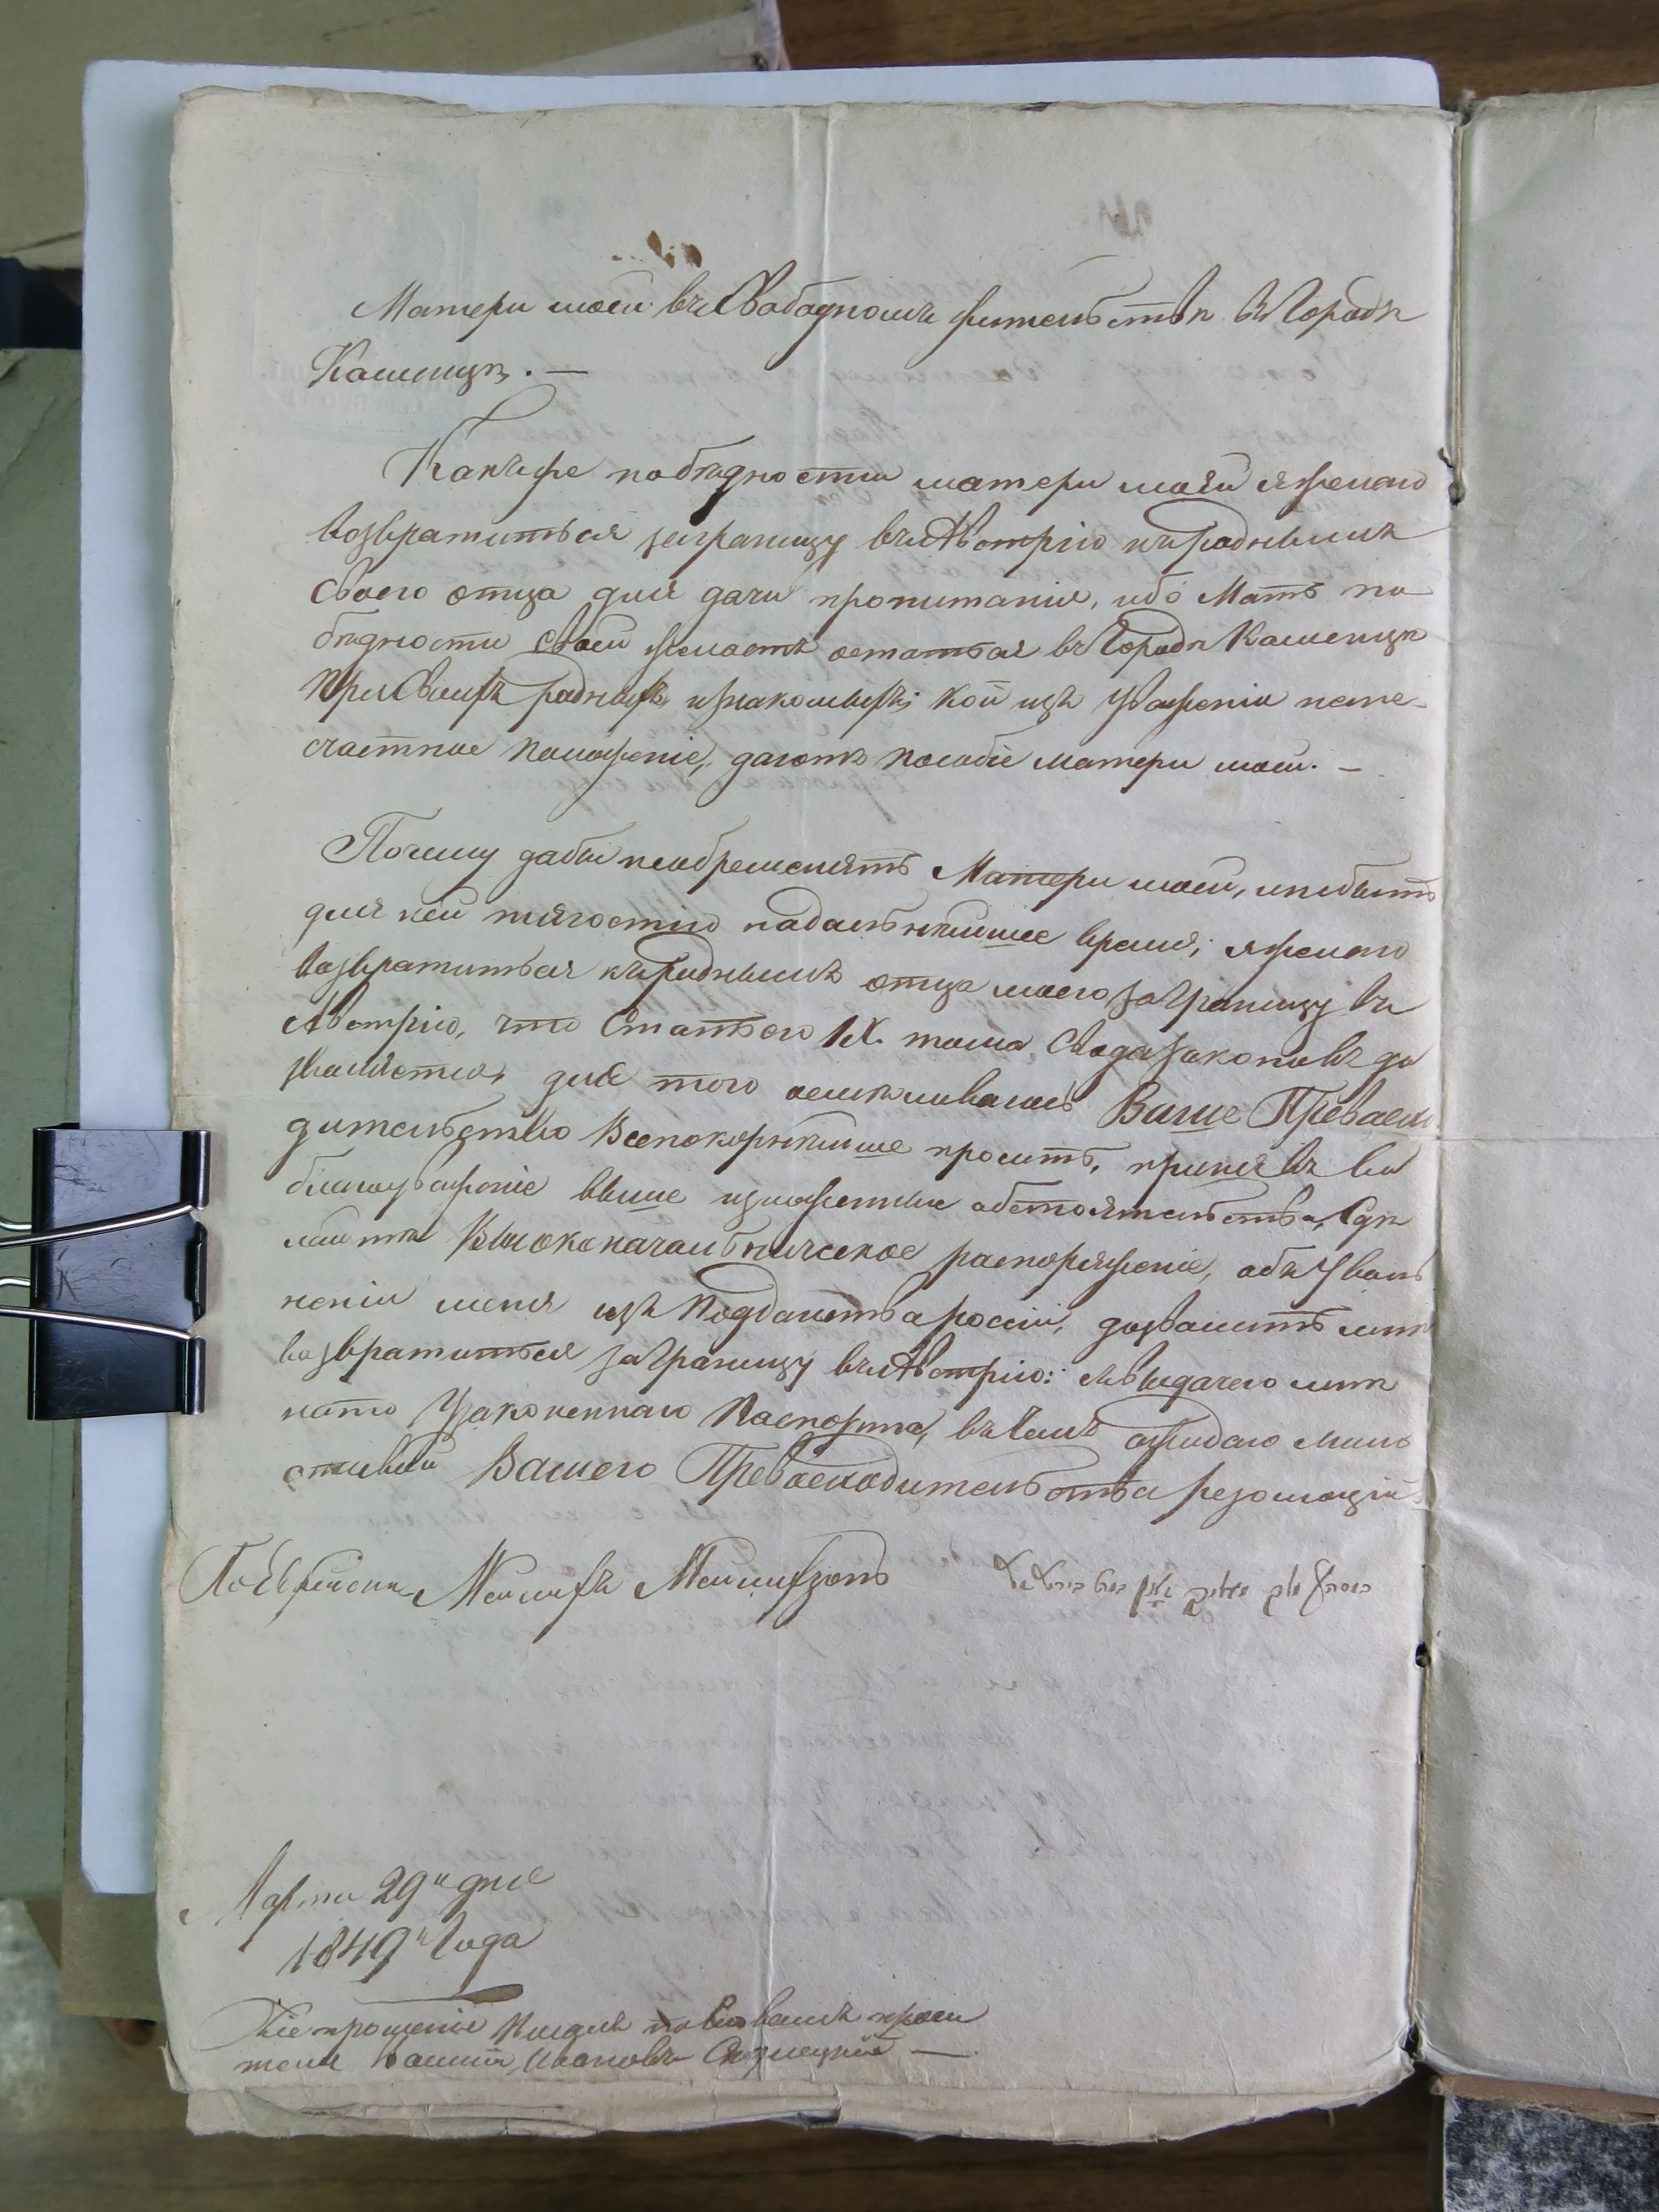 Матери моей въ Свабодномъ жительствѣ въ Городѣ
Каменцѣ. —
Какъ же по бѣдности матери моей я желаю
возвратиться заграницу въ Австрію къ роднымъ
своего отца для дачи пропитанія, ибо Мать по
бѣдности своей желаетъ остаться въ Городѣ Каменцѣ
при Своихъ родныхъ, и знакомыхъ; кои изъ уваженія
счастное положеніе, даютъ пособіе матери моей. —
Почему дабы необременять Матери моей, и небыть
для ней тягостію надальнѣйшее время; я желаю
возвратиться къ роднымъ отца моего за Границу въ
Австрію, что Статьею IX. тома Свода законовъ до
зваляется, для того осмѣливаюсь Ваше Превасхо
дительство Всепокорнѣйше просить, принявъ во
благоуваженіе выше изложенные обстоятельства, Сдѣ
лайте Высоконачальническое распоряженіе, объ Уволь
неніи меня изъ Подданства россіи, дозвалить мнѣ
возвратиться за Границу въ Австрію: съ выдачею мнѣ
на то Узаконеннаго Паспорта, въ чемъ ожидаю мило
стивой Вашего Превасходительства резолюціи.
По Еврейски Мейлихъ Мейлихзонъ
Марта 29го дня
1849го Года
Сіе прошеніе писалъ по Словамъ проси
теля